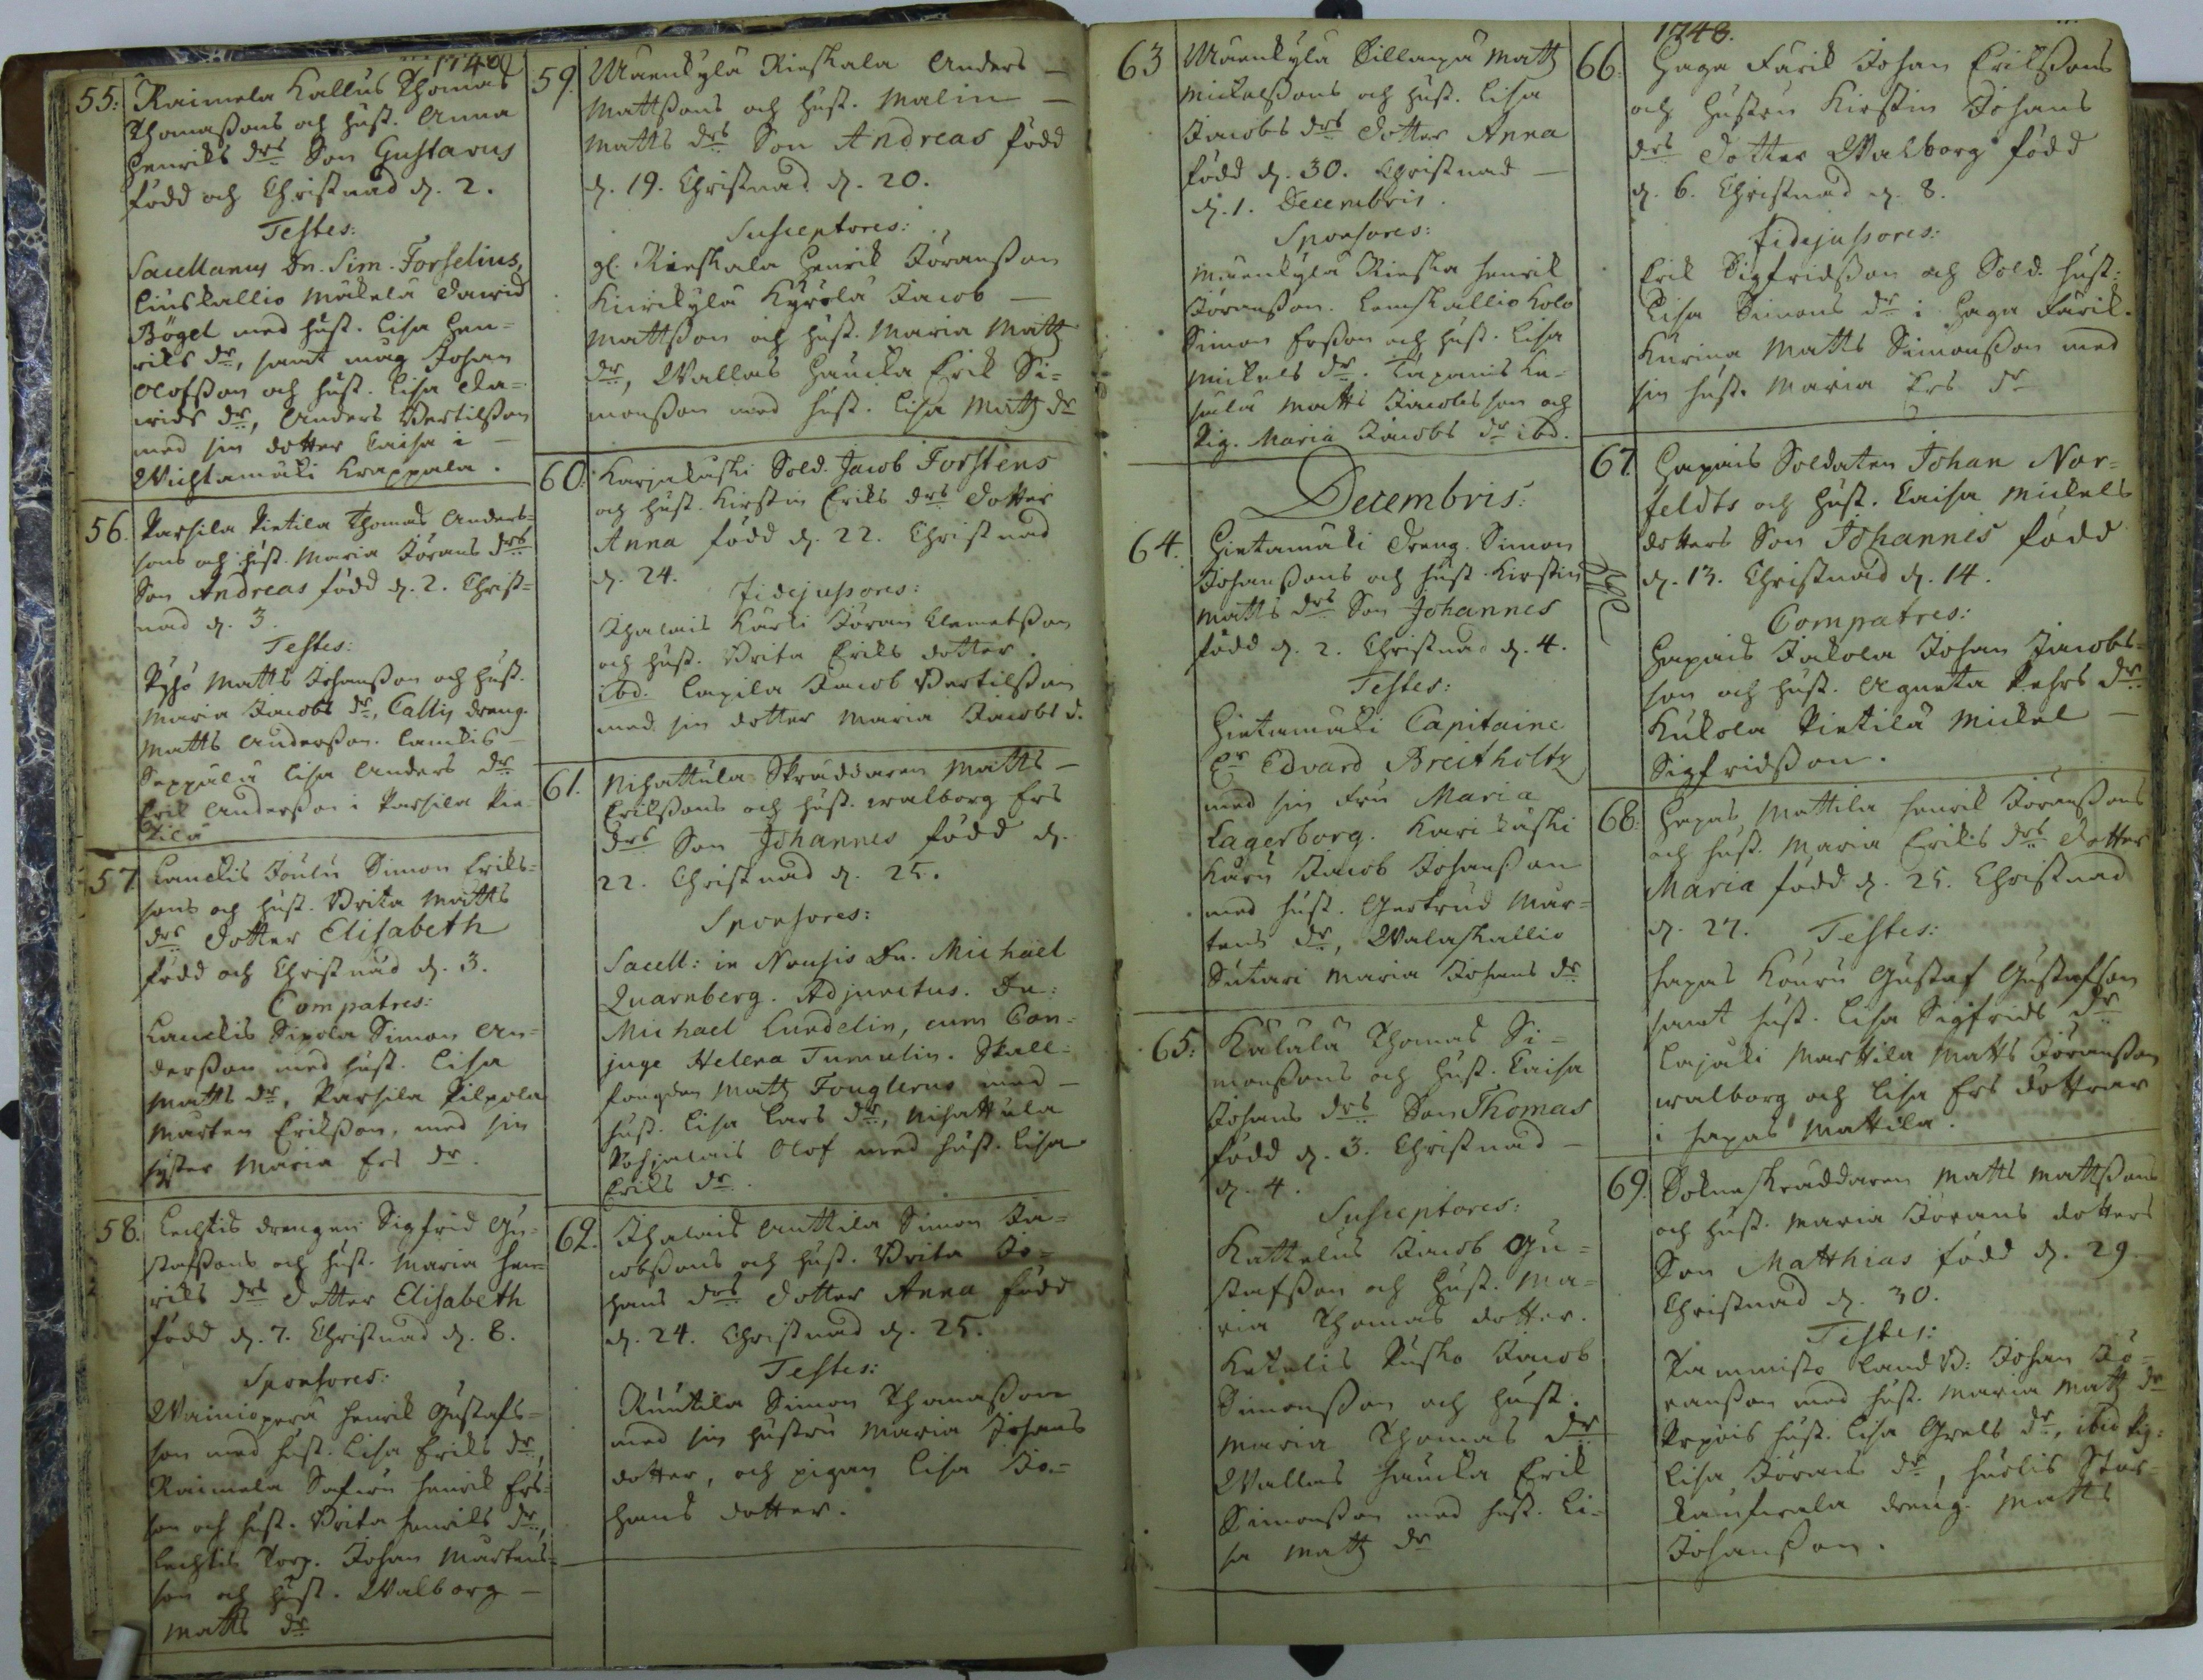 1748
55. Raimela Kallus Thomas
Thomaßons och hust. Anna
Henriks drs Son Gustavus
född och Christnad d. 2.
Testes:
Sacellanus Dn. Sim. Forselius,
Liuskallio Mäkelä David
Bögel med hust. Lisa Hen=
riks dr, samt mag Johan
Olofsson och hust. Lisa Da=
vids dr, Anders Bertilsson
med sin dotter Caisa i –
Wichtamäki Krappala.
56. Parsila Pietila Thomas Anders=
sons och hust. Maria Jörans drs
Son Andreas född d. 2. Christ=
nad d. 3.
Testes:
Pyhö Matts Johanßon och hust.
Maria Jacobs dr, Callis dreng
Matts Anderßon. Lanckis –
Seppälä Lisa Anders dr
Erik Anderßon i Parsila Pie
tilä
57. Lanckis Joulu Simon Eriks=
sons och hust. Brita Matts
drs dotter Elisabeth
född och Christnad d. 3.
Compatres:
Lanckis Sipola Simon An=
derßon med hust. Lisa
Matts dr, Parsila Pilpola
Mårten Erikßon, med sin
syster Maria Ers dr.
58. Lechtis drengen Sigfrid Gu=
stafßons och hust. Maria Hen=
riks drs dotter Elisabeth
född d. 7. Christnad d. 8.
Sponsores:
Wainiöperä Henrik Gustafs=
son med hust. Lisa Eriks dr,
Raimela Henrik Ers=
son och hust. Brita Henriks dr,
Lechtis Torp. Johan Mårtens=
son och hust. Walborg –
Matts dr
59. Mäenkylä Rieskala Anders –
Mattßons och hust. Malin –
Matts drs Son Andreas född
d. 19. Christnad d. 20.
Susceptores:
gl. Rieskala Henrik Jöranßon
Kiirikylä Kyrölä Jacob –
Mattßon och hust. Maria Matts
dr, Wallais Haucka Erik Si=
monßon med hust. Lisa Matts dr
60. Karjakåski Sold. Jacob Forstens
och hust. Kirstin Eriks drs dotter
Anna född d. 22. Christnad
d. 24.
Fidejussores:
Ihalais Kärki Jöran Clemetßon
och hust. Brita Eriks dotter.
ibd. Laxila Jacob Bertilßon
med sin dotter Maria Jacobs d.
61. Nihattula Skräddaren Matts –
Erikßons och hust. Walborg Ers
drs Son Johannes född d.
22. Christnad d. 25.
Sponsores:
Sacell: in Nousis Dn. Michael
Quarnberg. Adjunctus. Dn:
Michael Lundelin, cum Con=
juge Helena Tumelin. Skall=
fougden Matts Fouglerus med –
hust. Lisa Lars dr, Nihattula
Pohjalais Olof med hust. Lisa
Eriks dr.
62. Ihalais Anttila Simon Ja=
cobßons och hust. Brita Jo=
hans drs dotter Anna född
d. 24. Christnad d. 25.
Testes:
Ruutila Simon Thomaßon
med sin hustru Maria Johans
dotter, och pigan Lisa Jo=
hans dotter.
63 Mäenkylä Sillanpä Matts
Mickelßons och hust. Lisa
Jacobs drs dotter Anna
född d. 30. Christnad –
d. 1. Decembris.
Sponsores:
Mäenkylä Rieska Henrik
Jöranßon. Lemskallio Kolo
Simon Erßon och hust. Lisa
Mickels dr. Tapanis
Matts Jacobsson och
Pig. Maria Jacobs dr ibd.
Decembris:
64. Hietamäki Dreng. Simon
Johanßons och hust. Kirstin
Matts drs Son Johannes
född d. 2. Christnad d. 4.
Testes:
Hietamäki Capitaine
Hr Edvard Breitholtz
med sin Fru Maria
Lagerborg. Karikåski
Kuru Jacob Johanßon
med hust. Gertrud Mår=
tens dr, Walaskallio
Sutari Maria Johans dr
65. Kälälä Thomas Si=
monßons och hust. Caisa
Johans drs Son Thomas
född d. 3. Christnad –
d. 4.
Susceptores:
Kattelus Jacob Gu=
stafßon och hust. Ma=
ria Thomas dotter.
Ketelis Pusko Jacob
Simonßon och hust.
Maria Thomas dr
Wallais Haucka Erik
Simonßon med hust. Li=
sa Matts dr
1748.
66. Haga Färik Johan Erikßons
och hustru Kirstin Johans
drs dotter Walborg född
d. 6. Christnad d. 8.
Fidejussores:
Erik Sigfridßon och Sold. hust:
Lisa Simons dr i Haga Färik.
Kurina Matts Simonßon med
sin hust. Maria Ers dr
67. Hapais Soldaten Johan Nor=
feldts och hust. Caisa Mickels
dotters Son Johannes född
d. 13. Christnad d. 14.
Compatres:
Hapais Jakola Johan Jacobs=
son och hust. Agneta Pehrs dr
Kukola Pietilä Mickel –
Sigfridßon.
68. Hapas Mattila Henrik Jöranßons
och hust. Maria Eriks drs dotter
Maria född d. 25. Christnad
d. 27. Testes:
Hapas Kouru Gustaf Gustafson
samt hust. Lisa Sigfrids dr
Lajoki Marttila Matts Jöranßon
Walborg och Lisa Ers döttrar
i Hapas Mattila.
69. Sokneskräddaren Matts Mattßons
och hust. Maria Jörans dotters
Son Matthias född d. 29
Christnad d. 30.
Testes:
Tammisto Land B: Johan Jö=
ranßon med hust. Maria Matts dr
hust. Lisa Grels dr, ibid Pig:
Lisa Jörans dr,
dreng. Matts
Johanßon.